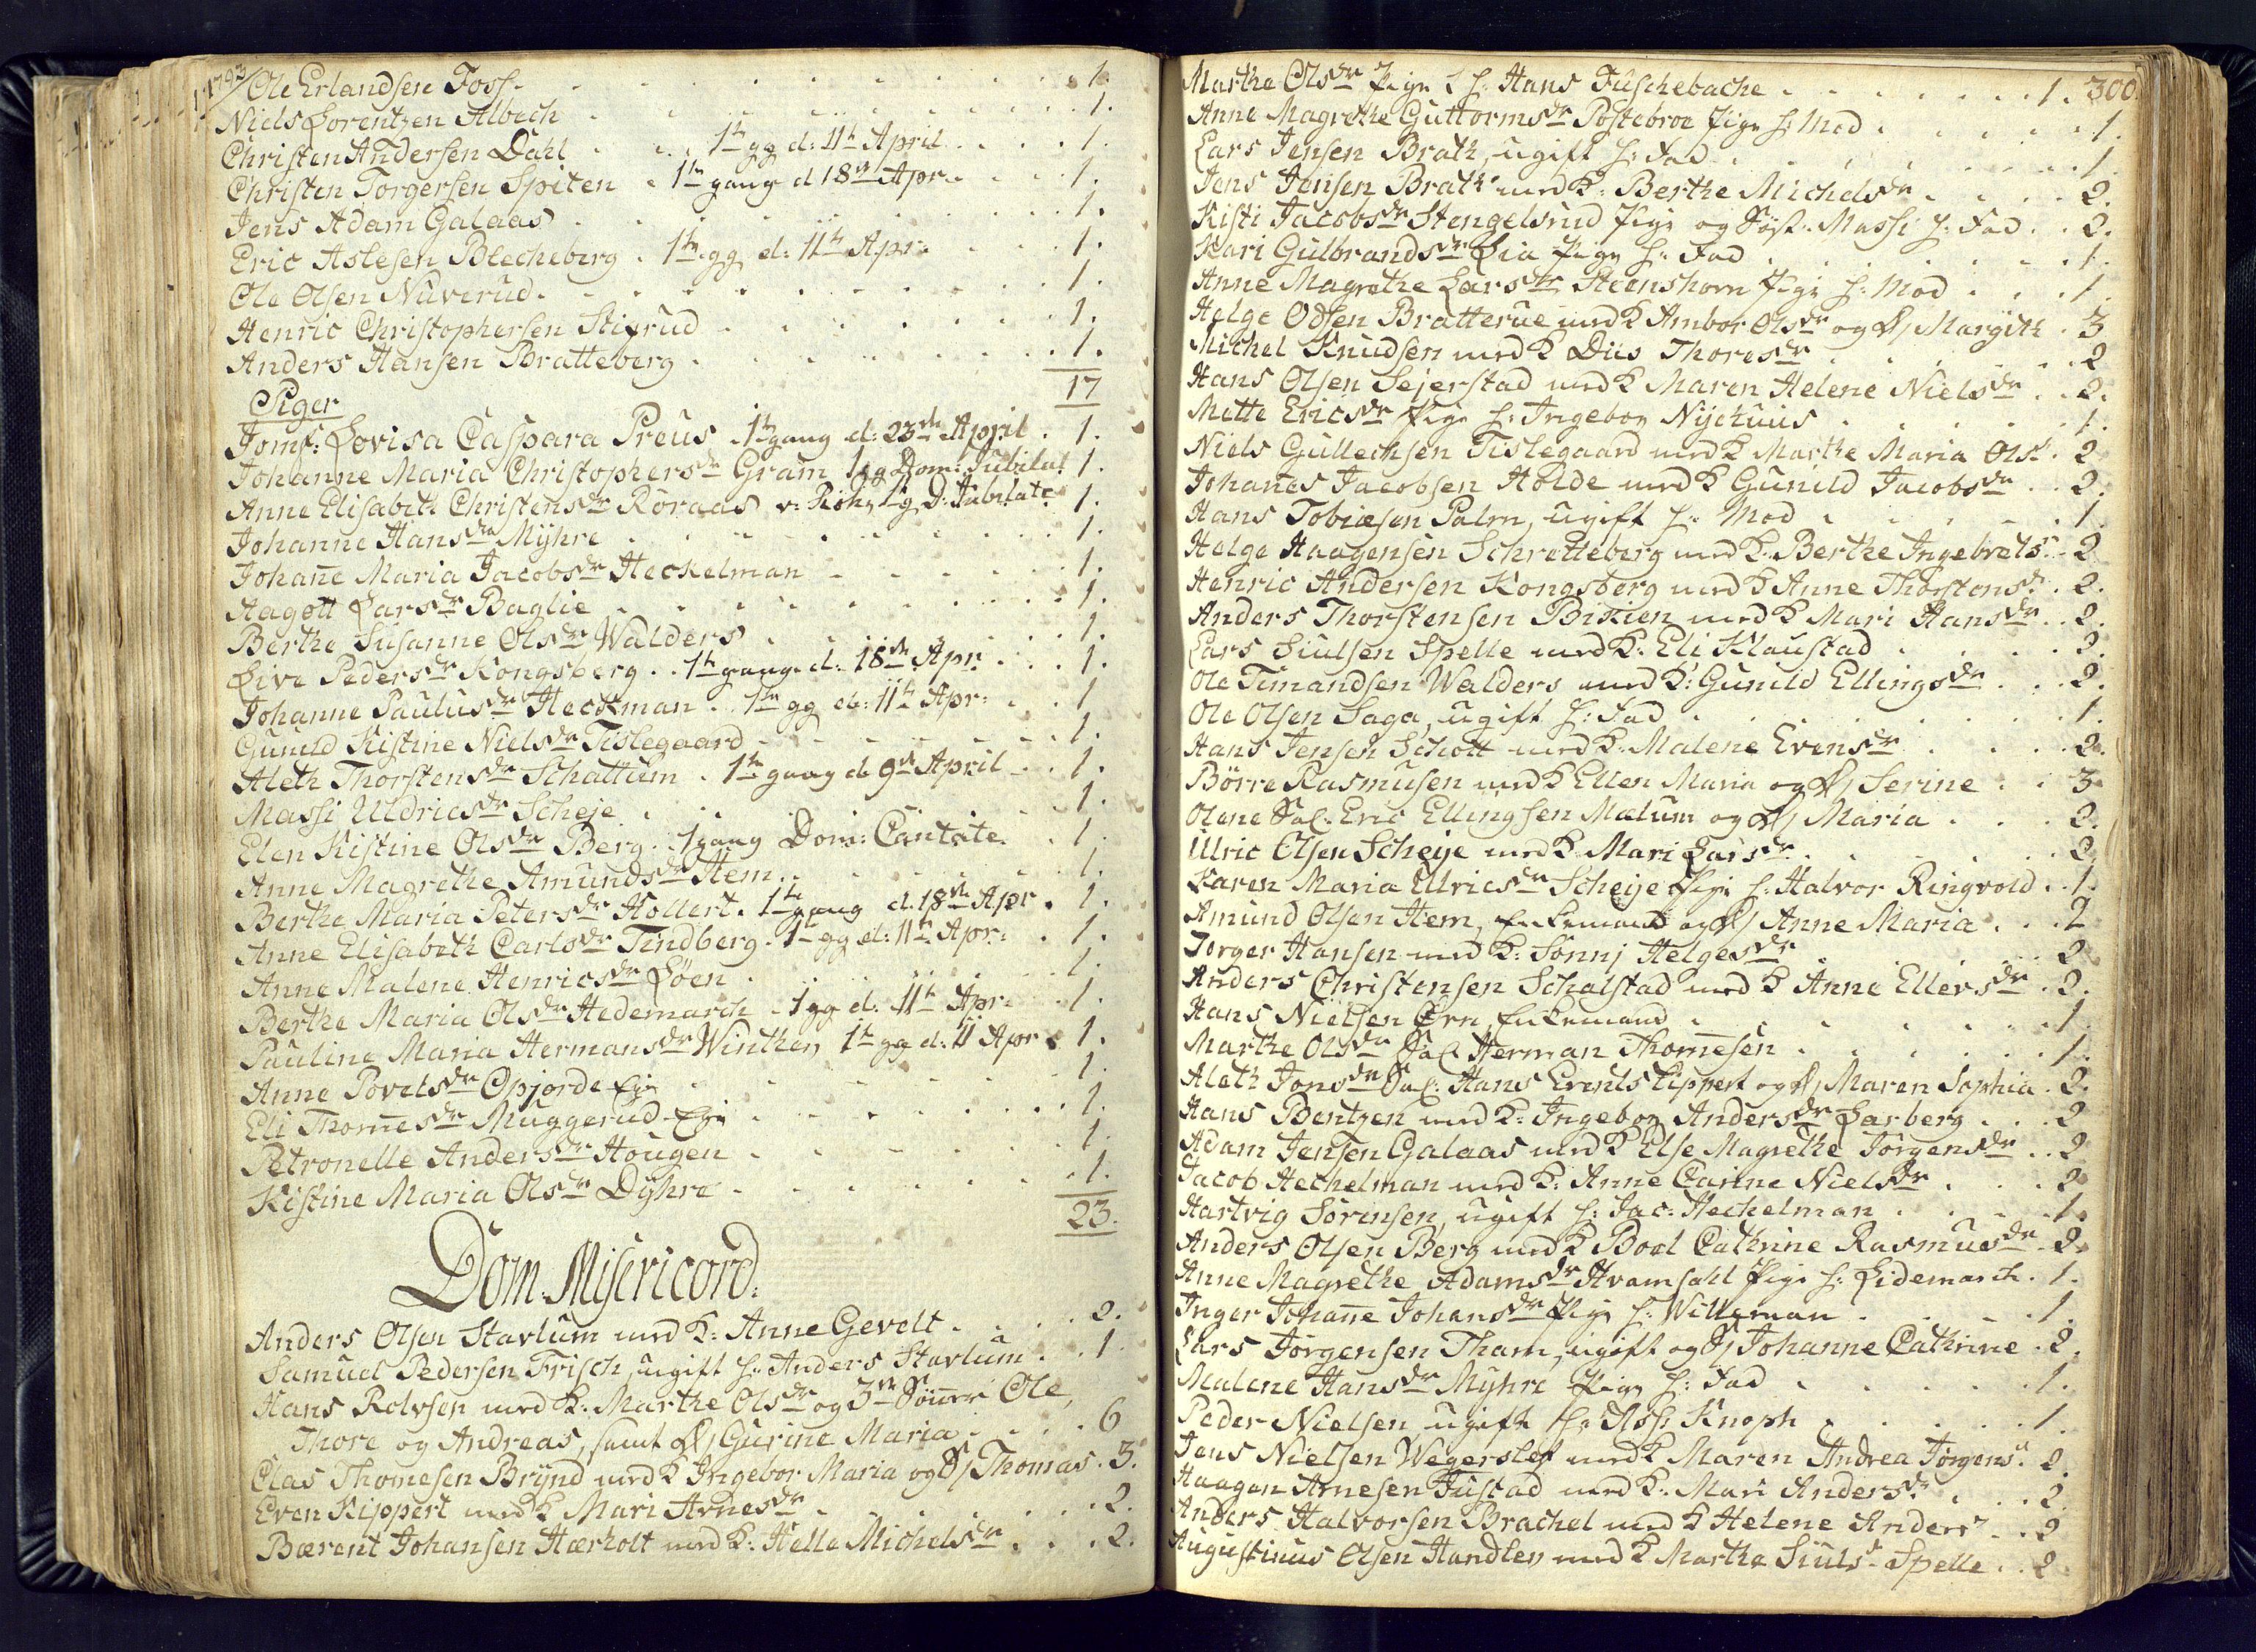 1793
Ole Erlandsen Foss . 1.
Niels Lorentzen Albech . 1.
Christen Andersen Dahl . 1te gg d: 11te April . 1.
Christen Torgersen Spiten . 1te gang d 18de Apr: . 1.
Jens Adam Galaas . 1.
Eric Aslesen Blecheberg . 1te gg d: 11te Apr: . 1.
Ole Olsen Nuverud . 1.
Henric Christophersen Stigrud . 1.
Anders Hansen Bratteberg . 1.
17
Piger
Jomf: Lovisa Caspara Preus . 1te gang d: 23de April . 1.
Johanne Maria Christophersdr Gram 1 gg Dom: Jubilat 1.
Anne Elisabeth Christensdr Röraas v: 1 g D: Jubilate 1.
Johanne Hansdr Mÿhre . 1.
Johane Maria Jacobsdr Heckelman . 1.
Aagott Larsdr Baglie . 1.
Berthe Susanne Olsdr Walders . 1.
Live Pedersdr Kongsberg . 1te gang d. 18de Apr . 1.
Johanne Paulusdr Heckman . 1te gg d: 11te Apr: . 1
Gunild Kistine Nielsdr Tislegaard . 1.
Aleth Thorstensdr Schattum . 1te gang d 9de April . 1.
Massi Uldricsdr Scheje . 1.
Elen Kistine Olsdr Berg . 1 gang Dom: Cantate . 1.
Anne Magrethe Amundsdr Hem . 1.
Berthe Maria Petersdr Hollert . 1te gang d. 18de Apr . 1.
Anne Elisabeth Carlsdr Tindberg . 1te gg d: 11te Apr: . 1.
Anne Malene Henricsdr Löen . 1.
Berthe Maria Olsdr Hedemarch . 1 gg d: 11te Apr: . 1.
Pauline Maria Hermansdr Winther, 1te gg d: 11 Apr . 1.
Anne Povelsdr Opjorde Eje . 1.
Eli Thomesdr Muggerud Eje . 1.
Petronelle Andersdr Hougen . 1.
Kistine Maria Olsdr Dÿhre . 1.
23.
Dom. Misericord:
Anders Olsen Stavlum med K: Anne Gevelt . 2.
Samuel Pedersen Frisch, ugift h: Anders Stavlum . 1
Hans Rolvsen med K: Marthe Olsdr og 3de Sönner Ole,
Thore og Andreas, samt D/ Gurine Maria . 6
Clas Thomesen Brÿnd med K Ingebor Maria og S/ Thomas . 3.
Even Kippert med K Mari Arnesdr . 2.
Bærent Johansen Hærholt med K: Helle Michelsdr . 2.
300
Marthe Olsdr Pige h: Hans Fuschebache . 1.
Anne Magrethe Guttormsdr Postebroe Pige h: Mod . 1.
Lars Jensen Brath, ugift h: Fad . 1.
Jens Jensen Brath med K: Berthe Michelsdr . 2.
Kisti Jacobsdr Stengelsrud Pige og Søst. Massi h: Fad . 2.
Kari Gulbrandsdr Lia Pige h: Fad . 1.
Anne Magrethe Larsdr Steenshorn Pige h: Mod . 1.
Helge Odsen Bratterue med K Ambor Olsdr og D/ Margith . 3
Michel Knudsen med K Diis Thoresdr . 2
Hans Olsen Sejerstad med K Maren Helene Nielsdr . 2.
Mette Ericsdr Pige h: Ingebor Nijehuus . 1.
Niels Gullechsen Tislegaard med K Marthe Maria Olsd . 2
Johanes Jacobsen Holde med K Gunild Jacobsdr . 2.
Hans Tobiæsen Palm, ugift h: Mod . 1.
Helge Haagensen Schretteberg med K: Berthe Ingebretsdr . 2
Henric Andersen Kongsberg med K Anne Thorstensd . 2.
Anders Thorstensen Bikien med K Mari Hansdr . 2.
Lars Siulsen Spelle med K: Eli Klaustad . 2.
Ole Timandsen Walders med K: Gunild Ellingsdr . 2.
Ole Olsen Saga, ugift h: Fad . 1.
Hans Jensen Schott med K: Malene Evensdr . 2.
Börre Rasmusen med K Ellen Maria og D/ Serine . 3
Olene Sal. Eric Ellingsen Mælum og D/ Maria . 2.
Ulric Olsen Scheije med K Mari Larsdr . 2.
Karen Maria Ulricsdr Scheije Pige h: Halvor Ringvold . 1.
Amund Olsen Hem, Enkemand og D/ Anne Maria . 2
Torger Hansen med K: Sönnj Helgesdr . 2
Anders Christensen Schalstad med K Anne Ellersdr . 2.
Hans Nielsen Örn, Enkemand . 1
Marthe Olsdr Sal Herman Thomesen . 1.
Aleth Jonsdr Sal: Hans Events Kippert og D/ Maren Sophia . 2.
Hans Bentzen med K: Ingebor Andersdr Larberg . 2
Adam Jensen Galaas med K Else Magrethe Jörgensdr . 2
Jacob Hechelman med K: Anne Carine Nielsdr . 2
Hartvig Sörensen, ugift h: Jac: Hechelman . 1.
Anders Olsen Berg med K Boel Cathrine Rasmusdr . 2.
Anne Magrethe Adamsdr Hvamsahl Pige h: Lidemarch . 1.
Inger Johane Johansdr Pige h: Willeman . 1.
Lars Jörgensen Tham, ugift og S/ Johanne Cathrine . 2.
Malene Hansdr Mÿhre Pige h: Fad . 1.
Peder Nielsen, ugift h: Ass: Knoph . 1.
Jens Nielsen Wegersløf med K Maren Andrea Jörgensd . 2.
Haagen Arnesen Fustad med K: Mari Andersd . 2.
Anders Halvorsen Brachel med K Helene Andersd . 2
Augustinus Olsen Handlen med K Marthe Siulsd Spelle . 2